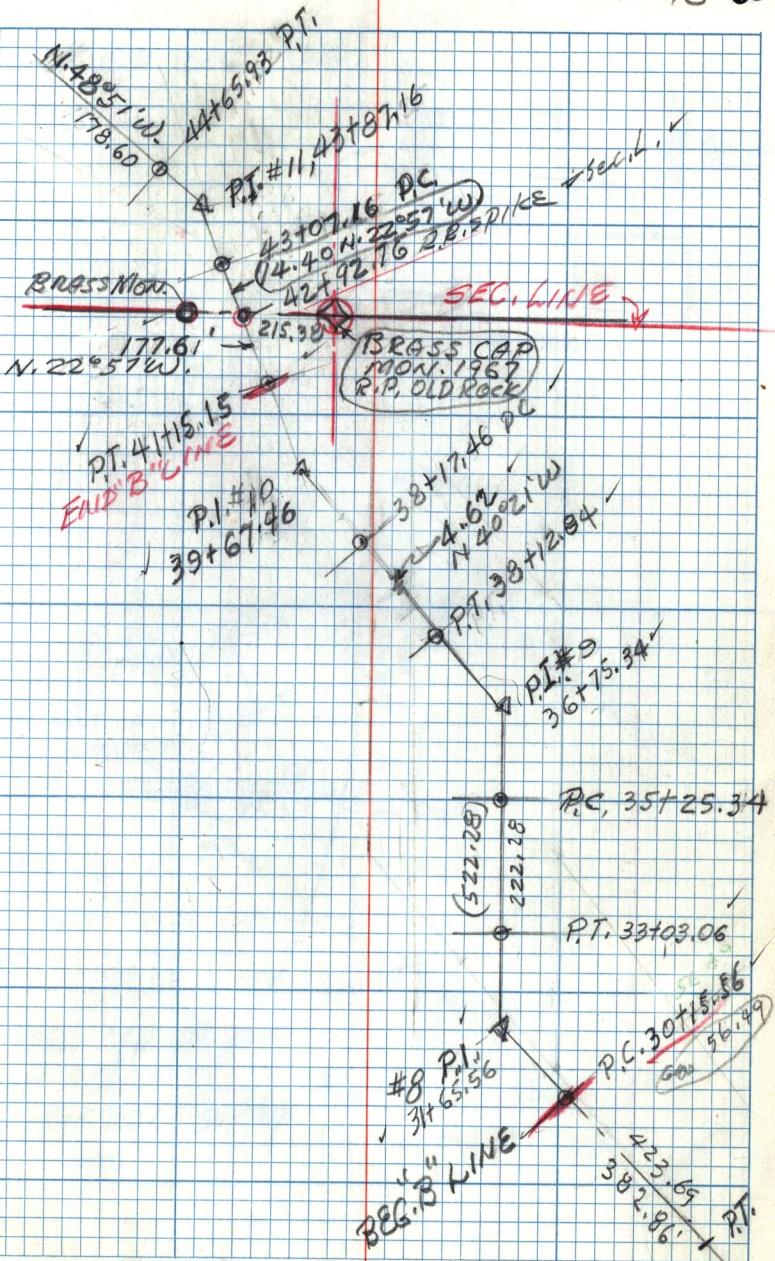 N. 48°51'W.
178.60
44+65.93 P.T.
P.I. #11, 43+87.16
43+07.16 P.C.
(14.40 N.22°57'W)
42+92.76 R.R. SPIKE
Sec. L. ✓
BRASS MON.
SEC. LINE
215.38
177.61'
N. 22°57'W.
BRASS CAP
MON. 1967
R.P. OLD ROCK
✓
P.T. 41+15.15
END "B" LINE
38+17.46 PC
P.I. #10
39+67.46
✓
4.62 ✓
N 40°21'W
P.T. 38+12.84 ✓
P.I. #9
36+75.34 ✓
P.C. 35+25.34
(522.28)
222.28
✓
P.T. 33+03.06
P.C. 30+15.56 ✓
56.49
#8 P.I.
31+65.56
✓
BEG. "B" LINE
423.69
382.86'
P.T.